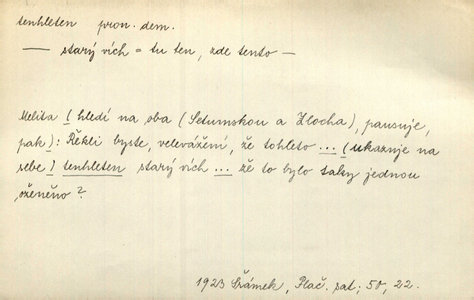 tenhleten pron. dem.
— starý vích = tu ten, zde tento —
Melita (hledí na oba (Setumskou a Zlocha), pausuje,
pak): Řekli byste, velevážení, že tohleto ... (ukazuje na
sebe) tenhleten starý vích ... že to bylo taky jednou
oženěno?
1923 Šrámek, Plač. sat; 50, 22.